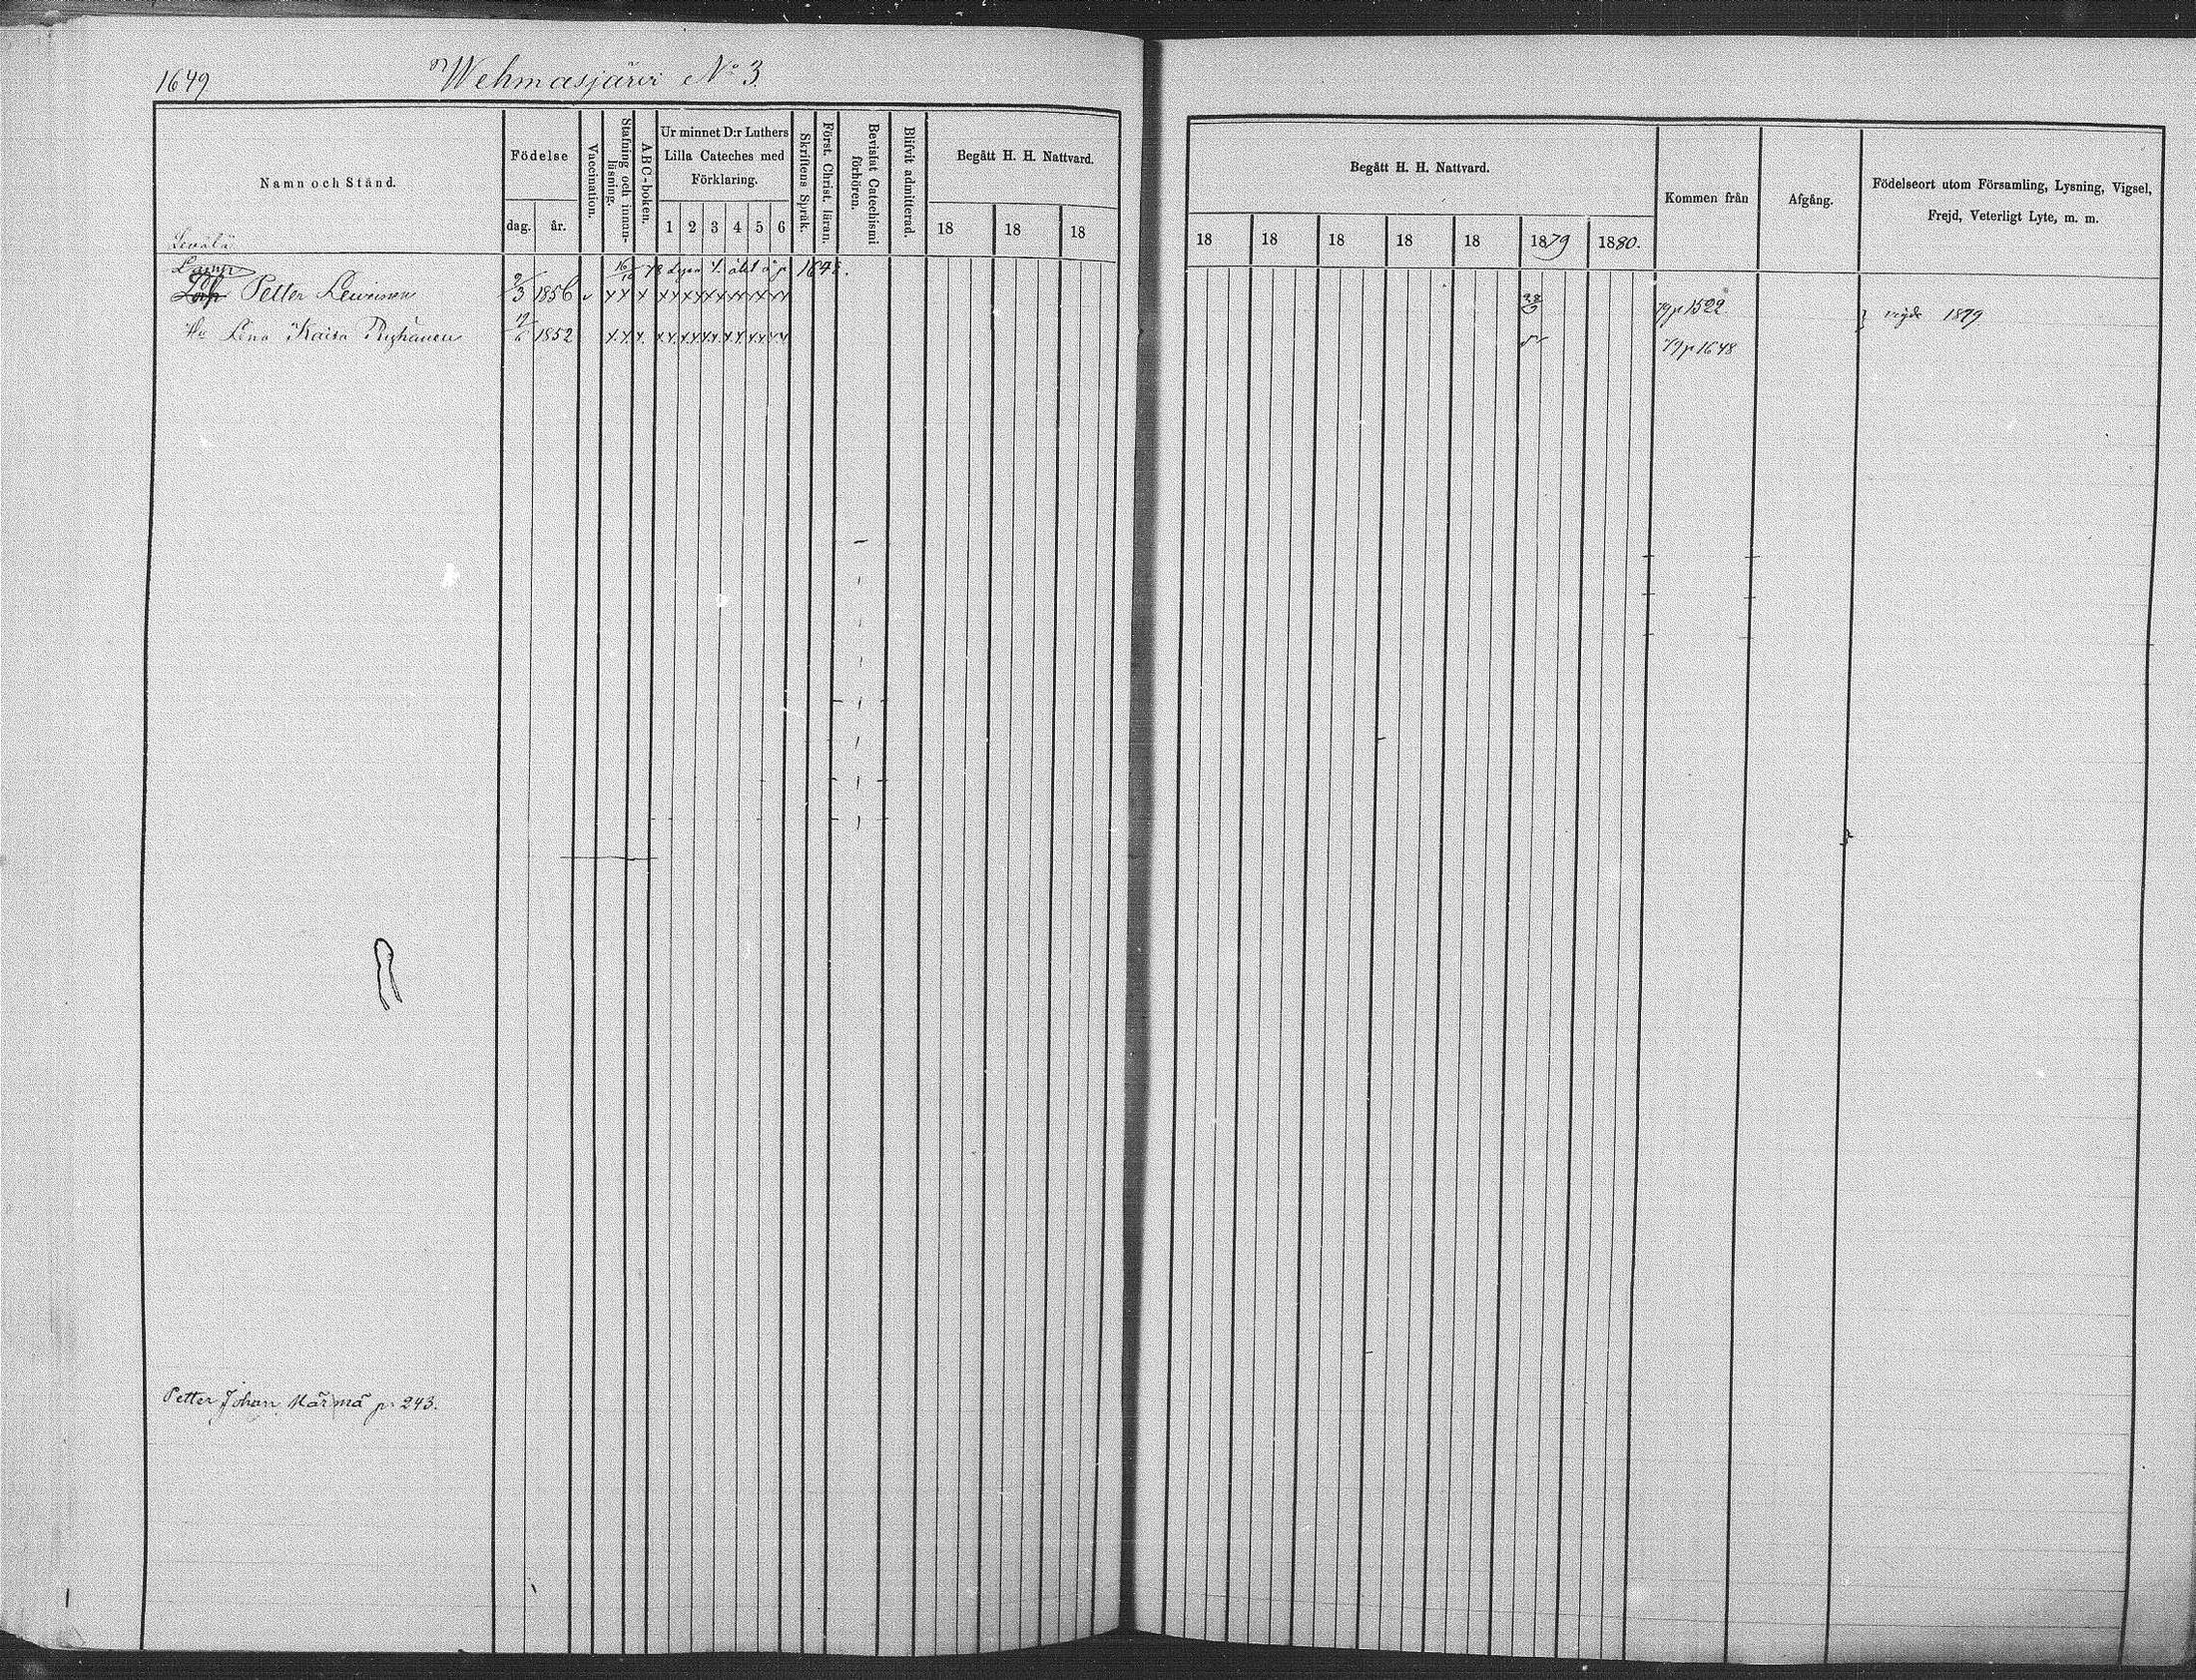 1649 Wehmasjärvi No 3
Namn och Stånd.
Födelse
dag. år.
Vaccination.
Stafning och innanläsning.
A B C-boken.
Ur minnet D:r Luthers Lilla Cateches med Förklaring.
1 2 3 4 5 6
Skriftens Språk.
Först. Christ. läran.
Bevistat Catechismi förhören.
Blifvit admitterad.
Begått H. H. Nattvard.
18 18 18
Begått H. H. Nattvard.
18 18 18 18 18 1879 1880.
Kommen från
Afgång.
Födelseort utom Församling, Lysning, Vigsel, Frejd, Veterligt Lyte, m. m.
Levälä
1648.
Petter 3 1856 79 p 1522 vigde 1879
Lena Kaisa 1852 79 p 1648
Petter Johan Närmä p. 243.